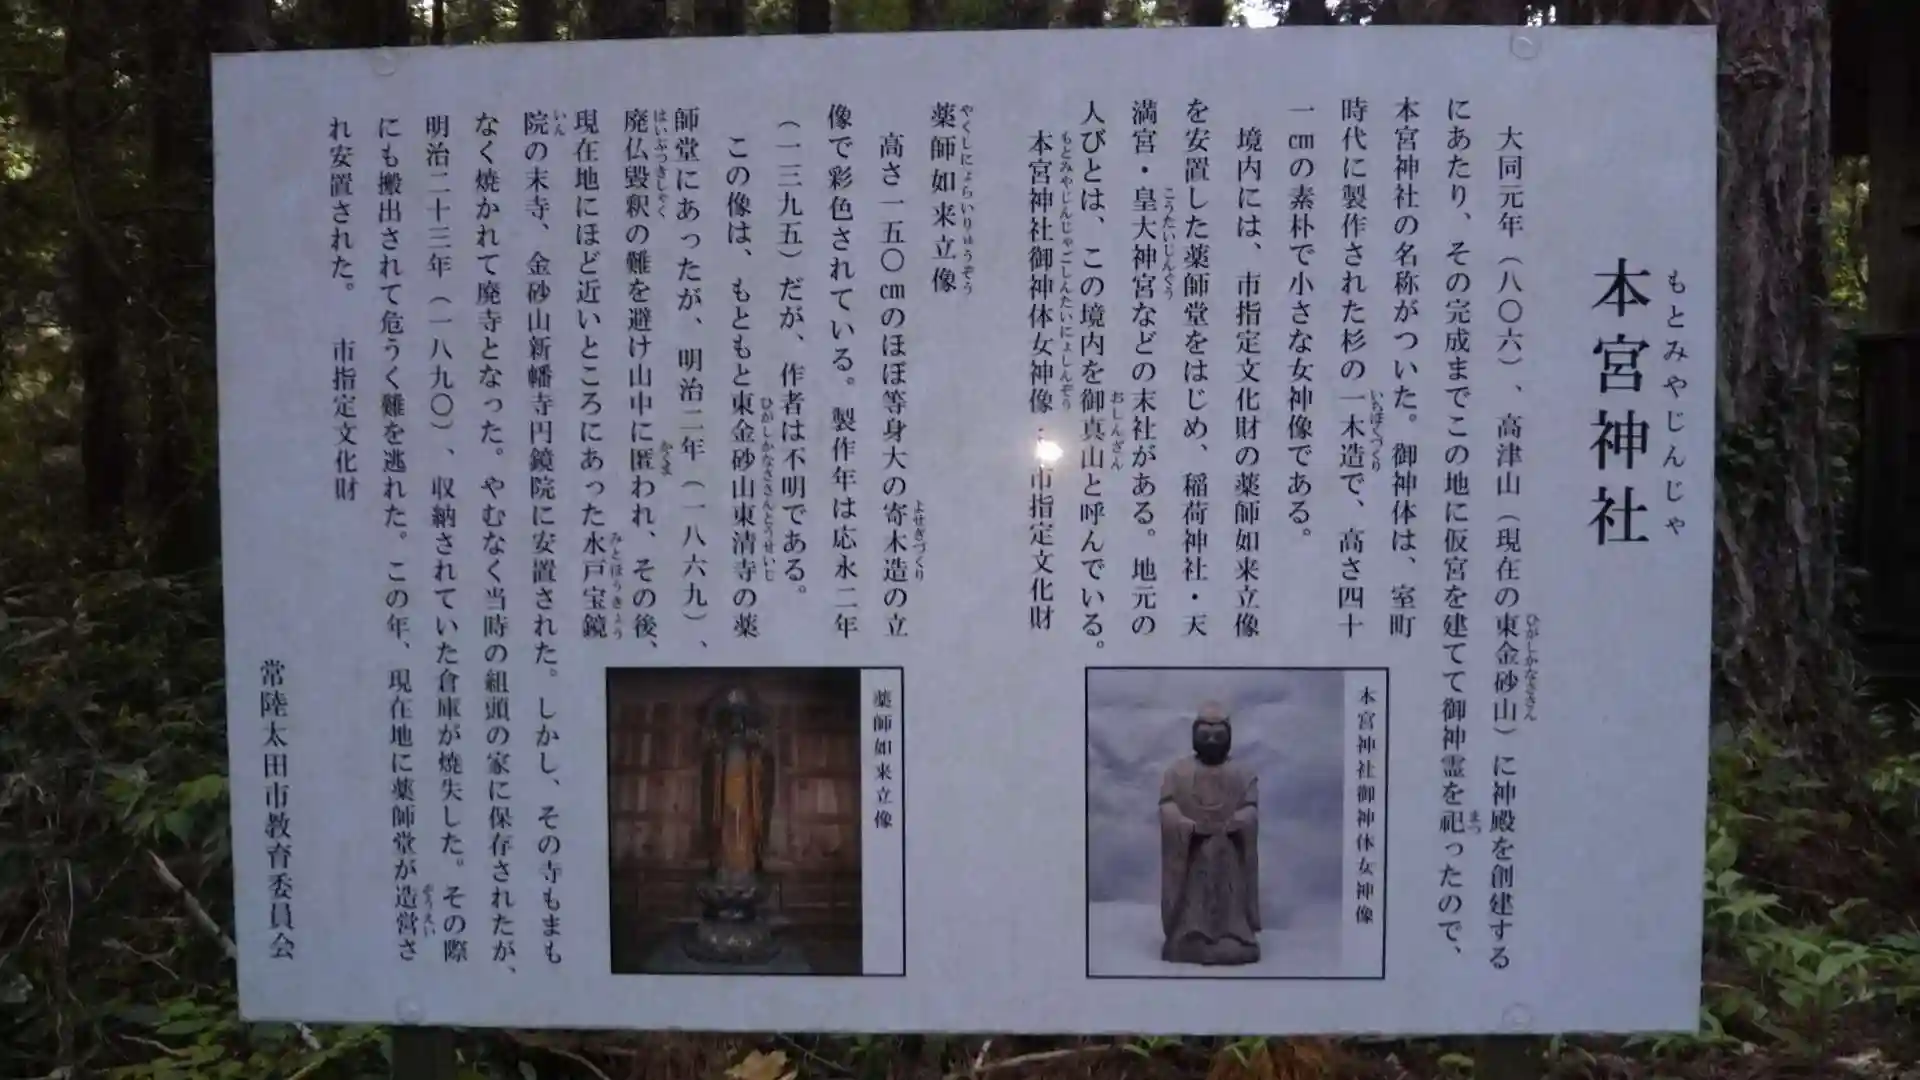 本宮神社
もとみやじんじゃ
大同元年（八〇六）、高津山（現在の東金砂山）に神殿を創建する
ひがしかなささん
にあたり、その完成までこの地に仮宮を建てて御神霊を祀ったので、
まつ
本宮神社の名称がついた。御神体は、室町
時代に製作された杉の一木造で、高さ四十
いちぼくづくり
一㎝の素朴で小さな女神像である。
境内には、市指定文化財の薬師如来立像
を安置した薬師堂をはじめ、稲荷神社・天
満宮・皇大神宮などの末社がある。地元の
こうたいじんぐう
人びとは、この境内を御真山と呼んでいる。
おしんざん
本宮神社御神体女神像
もとみやじんじゃごしんたいにょしんぞう
市指定文化財
薬師如来立像
やくしにょらいりゅうぞう
高さ一五〇㎝のほぼ等身大の寄木造の立
よせぎづくり
像で彩色されている。製作年は応永二年
（一三九五）だが、作者は不明である。
この像は、もともと東金砂山東清寺の薬
ひがしかなささんとうせいじ
師堂にあったが、明治二年（一八六九）、
廃仏毀釈の難を避け山中に匿われ、その後、
はいぶつきしゃく
かくま
現在地にほど近いところにあった水戸宝鏡
みとほうきょう
院の末寺、金砂山新幡寺円鏡院に安置された。しかし、その寺もまも
いん
なく焼かれて廃寺となった。やむなく当時の組頭の家に保存されたが、
明治二十三年（一八九〇）、収納されていた倉庫が焼失した。その際
にも搬出されて危うく難を逃れた。この年、現在地に薬師堂が造営さ
ぞうえい
れ安置された。
市指定文化財
常陸太田市教育委員会
本宮神社御神体女神像
薬師如来立像